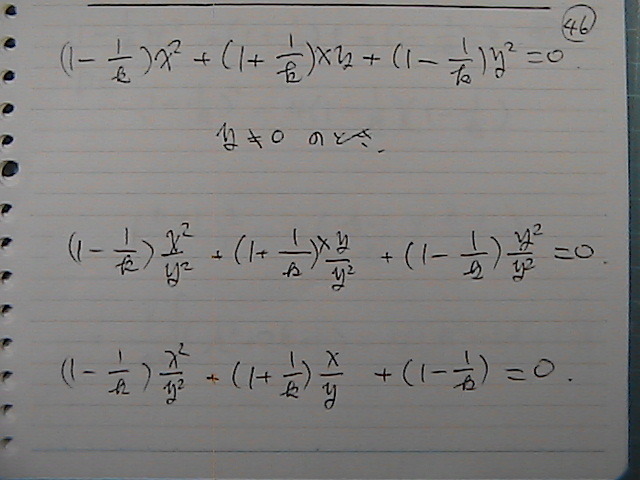 46
(1 - 1/k)x² + (1 + 1/k)xy + (1 - 1/k)y² = 0.
y ≠ 0 のとき.
(1 - 1/k) x²/y² + (1 + 1/k) xy/y² + (1 - 1/k) y²/y² = 0.
(1 - 1/k) x²/y² + (1 + 1/k) x/y + (1 - 1/k) = 0.